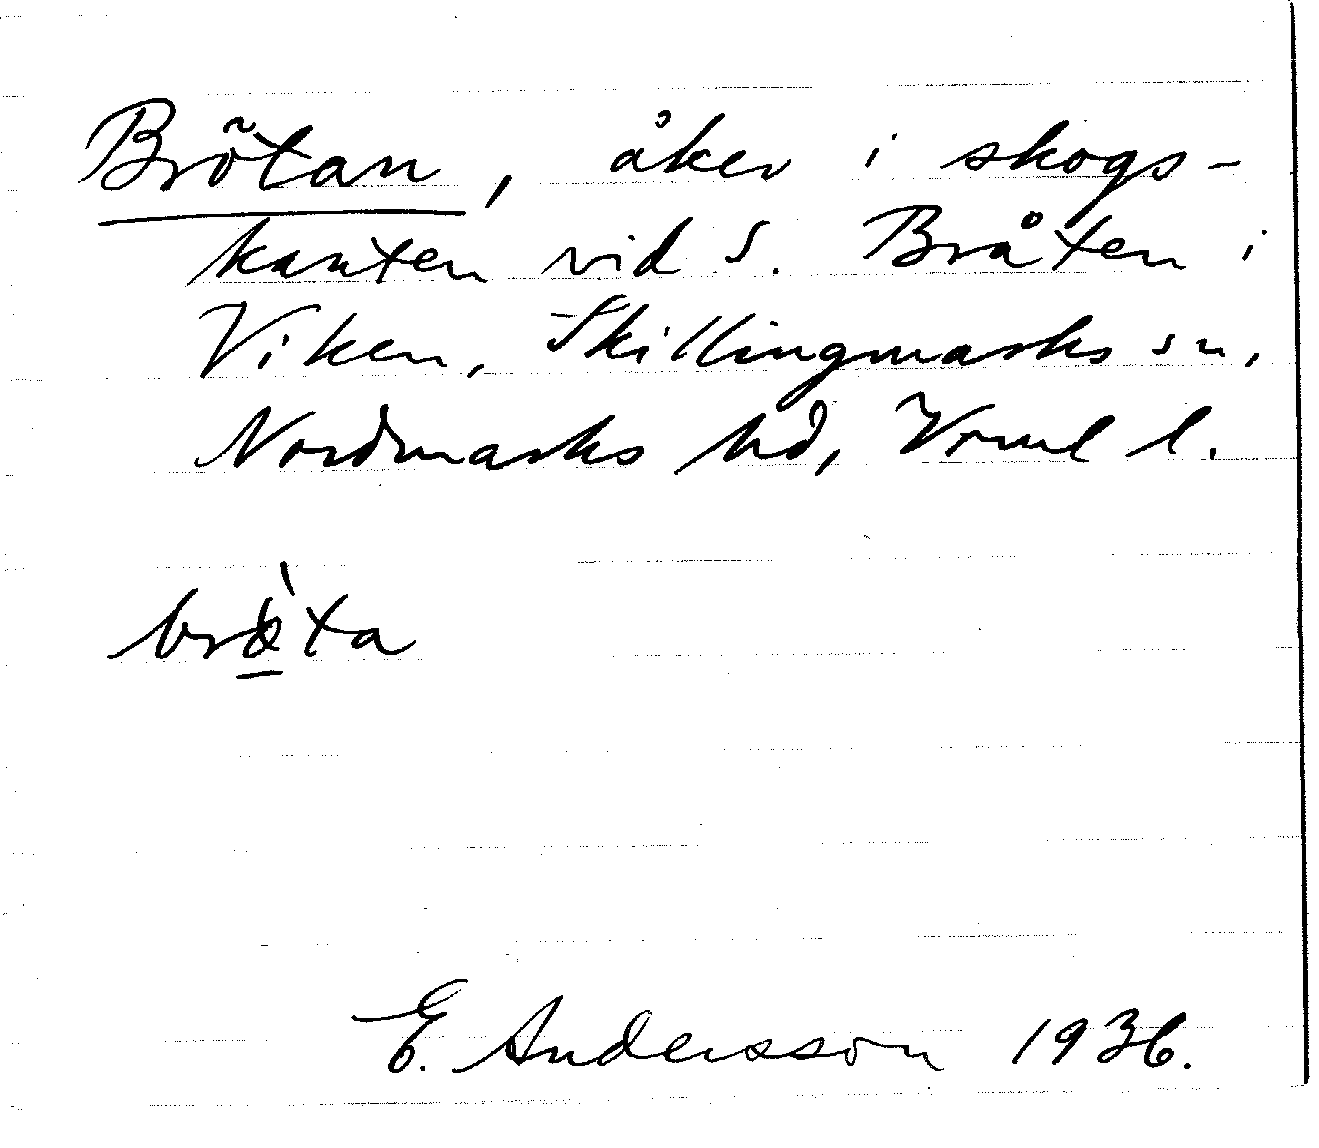 Brötan, åker i skogs-
kanten vid S. Bråten i
Viken, Skillingmarks sn,
Nordmarks hd, Vrml l.
E. Andersson 1936.